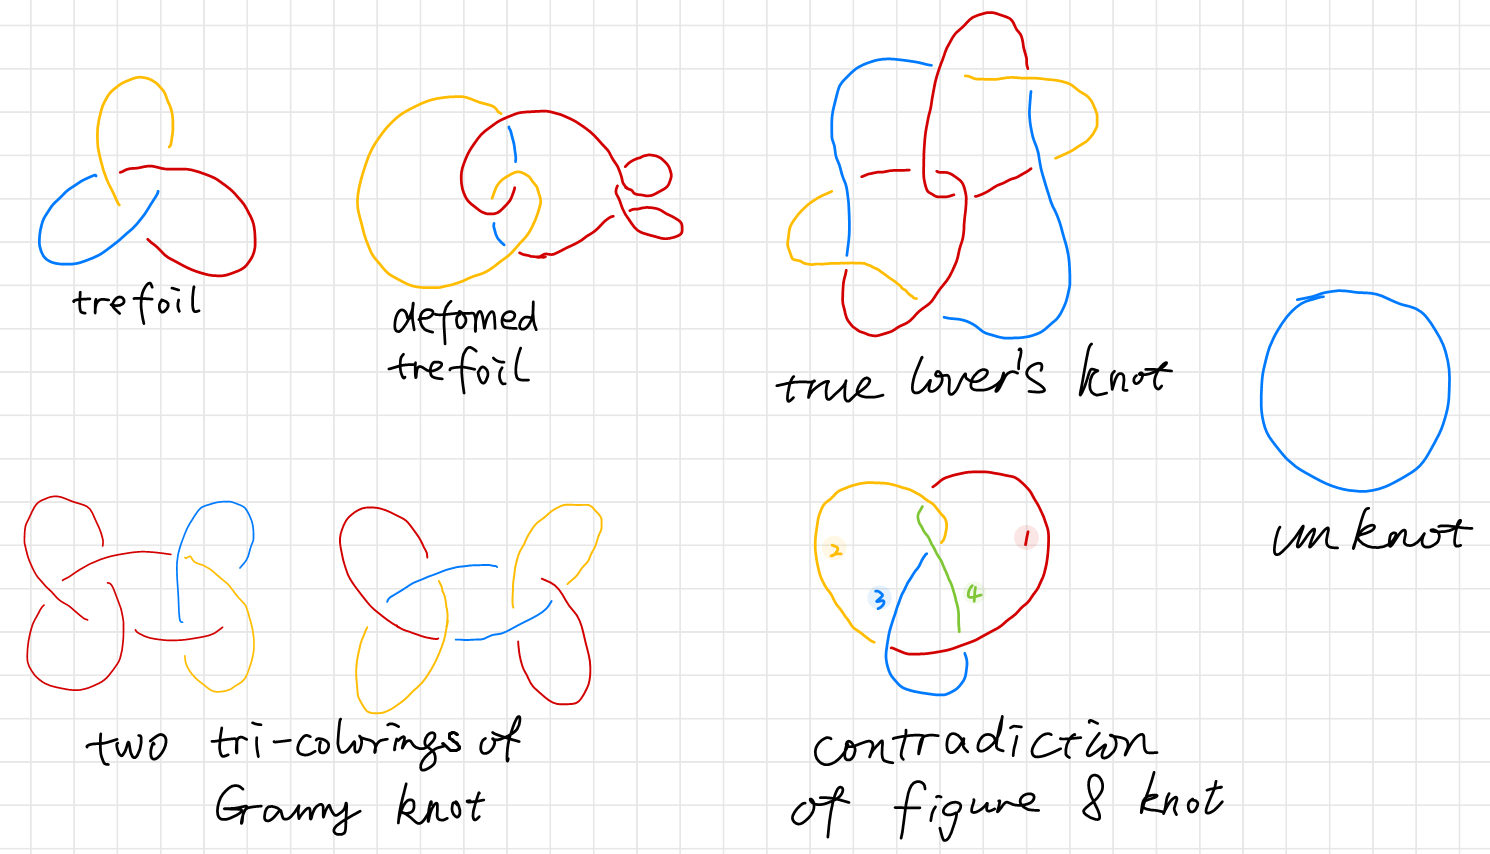 trefoil
defomed
trefoil
true lover's knot
unknot
two tri-colorings of
Granny knot
1
2
3
4
contradiction
of figure 8 knot